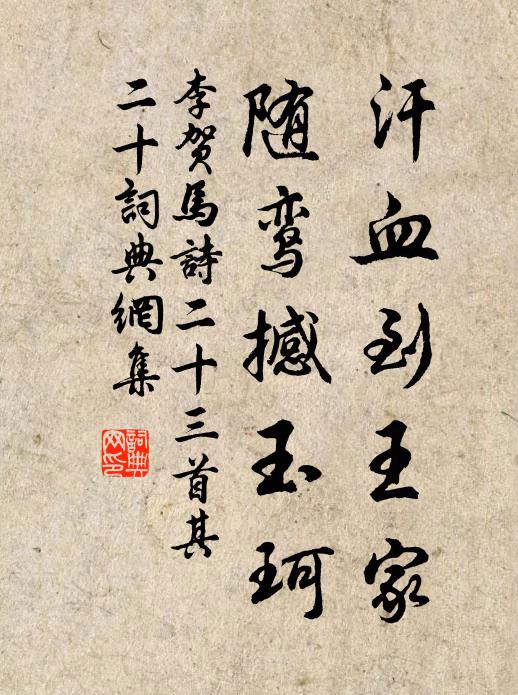 汗血到王家
随鸾撼玉珂
李贺馬詩二十三首其
二十詞典網集
詞典
网印